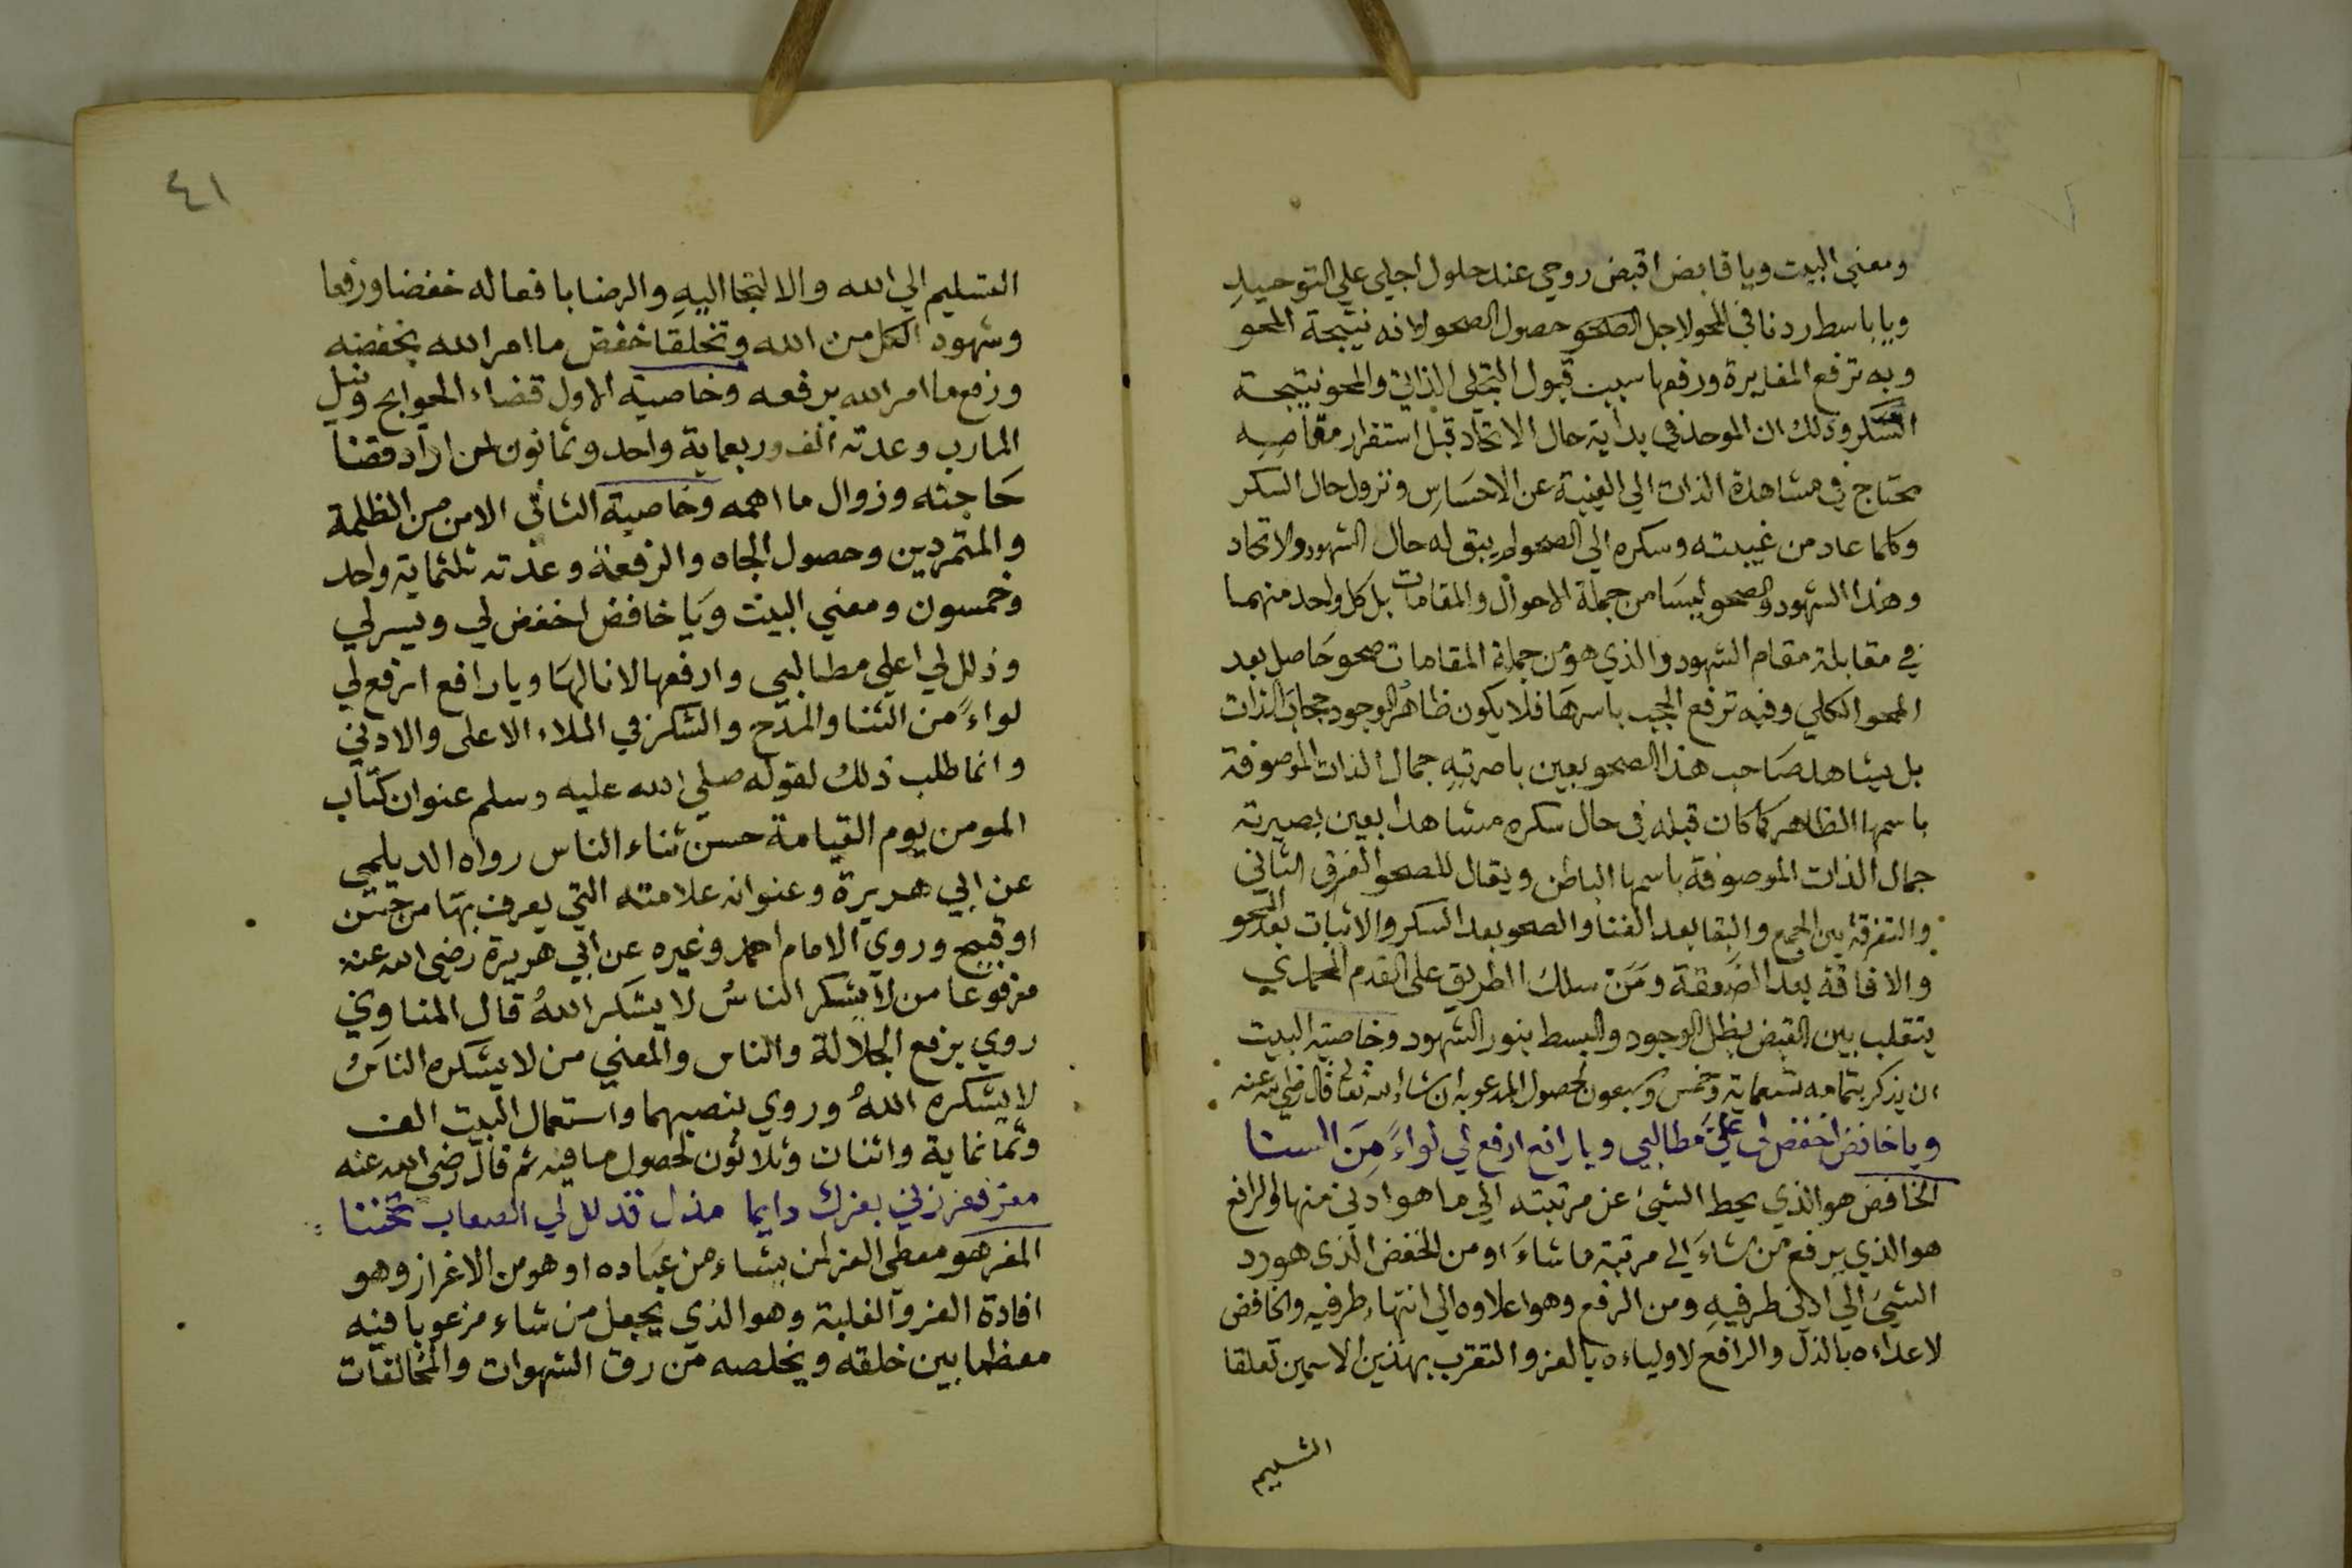 ومعني البيت ويا قابض اقبض روحي عند حلول اجلي علي التوحيد
ويا باسط ردنا في المحو لاجل الصحو حصول الصحو لانه نتيجة المحو
وبه ترفع المغايرة ورفعها سبب قبول التجلي الذاتي والمحو نتيجة
السكر وذلك ان الموحد في بداية حال الاتحاد قبل استقرار مقامه
محتاج في مشاهدة الذات الي الغيبة عن الاحساس ونزول حال السكر
وكلما عاد من غيبته وسكره الي الصحو لم يبق له حال الشهود والاتحاد
وهذا الشهود والصحو ليسا من جملة الاحوال والمقامات بل كل واحد منهما
في مقابلة مقام الشهود والذي هو من جملة المقامات صحو حاصل بعد
المحو الكلي وفيه ترفع الحجب باسرها فلا يكون ظاهر الوجود حجاب الذات
بل يشاهد صاحب هذا الصحو بعين باصرته جمال الذات الموصوفة
باسمها الظاهر كما كان قبله في حال سكره مشاهدا بعين بصيرته
جمال الذات الموصوفة باسمها الباطن ويقال للصحو الفرق الثاني
والتفرقة بين الجمع والبقا بعد الفنا والصحو بعد السكر والاثبات بعد المحو
والافاقة بعد الصعقة ومن سلك الطريق على القدم المحمدي
يتقلب بين القبض بظل الوجود والبسط بنور الشهود وخاصية البيت
ان يذكر بتمامه تسعماية وخمس وسبعون لحصول المدعو به ان شاء الله تعالى قال رضي الله عنه
ويا خافض اخفض لي عليَّ مطالبي ويا رافع ارفع لي لواءً مِنَ السنا
الخافض هو الذي يحط الشئ عن مرتبته الي ما هو ادني منها والرافع
هو الذي يرفع من شاء الي مرتبة ما شاء او من الخفض الذي هو رد
الشئ الي ادني طرفيه ومن الرفع وهو اعلاوه الي انتهاء طرفيه والخافض
لاعداءه بالذل والرافع لاولياءه بالعز والتقرب بهذين الاسمين تعلقا
التسليم
٤١
التسليم الي الله والالتجا اليه والرضا بافعاله خفضا ورفعا
وشهود الكل من الله وتخلقا خفض ما امر الله بخفضه
ورفع ما امر الله برفعه وخاصية الاول قضاء الحوايج ونيل
المارب وعدته الف وربعماية واحد وثمانون لمن اراد قضا
حاجته وزوال ما اهمه وخاصية الثاني الامن من الظلمة
والمتمردين وحصول الجاه والرفعة وعدته ثلثماية واحد
وخمسون ومعني البيت ويا خافض اخفض لي ويسر لي
وذلل لي اعلي مطالبي وارفعها لانالها ويا رافع ارفع لي
لواءً من الثنا والمدح والشكر في الملاء الاعلى والادني
وانما طلب ذلك لقوله صلي الله عليه وسلم عنوان كتاب
المومن يوم القيامة حسن ثناء الناس رواه الديلمي
عن ابي هريرة وعنوانه علامته التي يعرف بها من حسن
او قبيح وروي الامام احمد وغيره عن ابي هريرة رضي الله عنه
مرفوعا من لا يشكر الناسُ لا يشكر اللهُ قال المناوي
روي برفع الجلالة والناس والمعني من لا يشكره الناس
لا يشكره اللهُ وروي بنصبهما واستعمال البيت الف
وثمانماية واثنان وثلاثون لحصول ما فيه ثم قال رضي الله عنه
معز فعززني بعزك دايما مذل فذلل لي الصعاب تحننا
المعز هو معطي العز لمن يشاء من عباده او هو من الاعزاز وهو
افادة العز والغلبة وهو الذي يجعل من شاء مرغوبا فيه
معظما بين خلقه ويخلصه من رق الشهوات والمخالفات